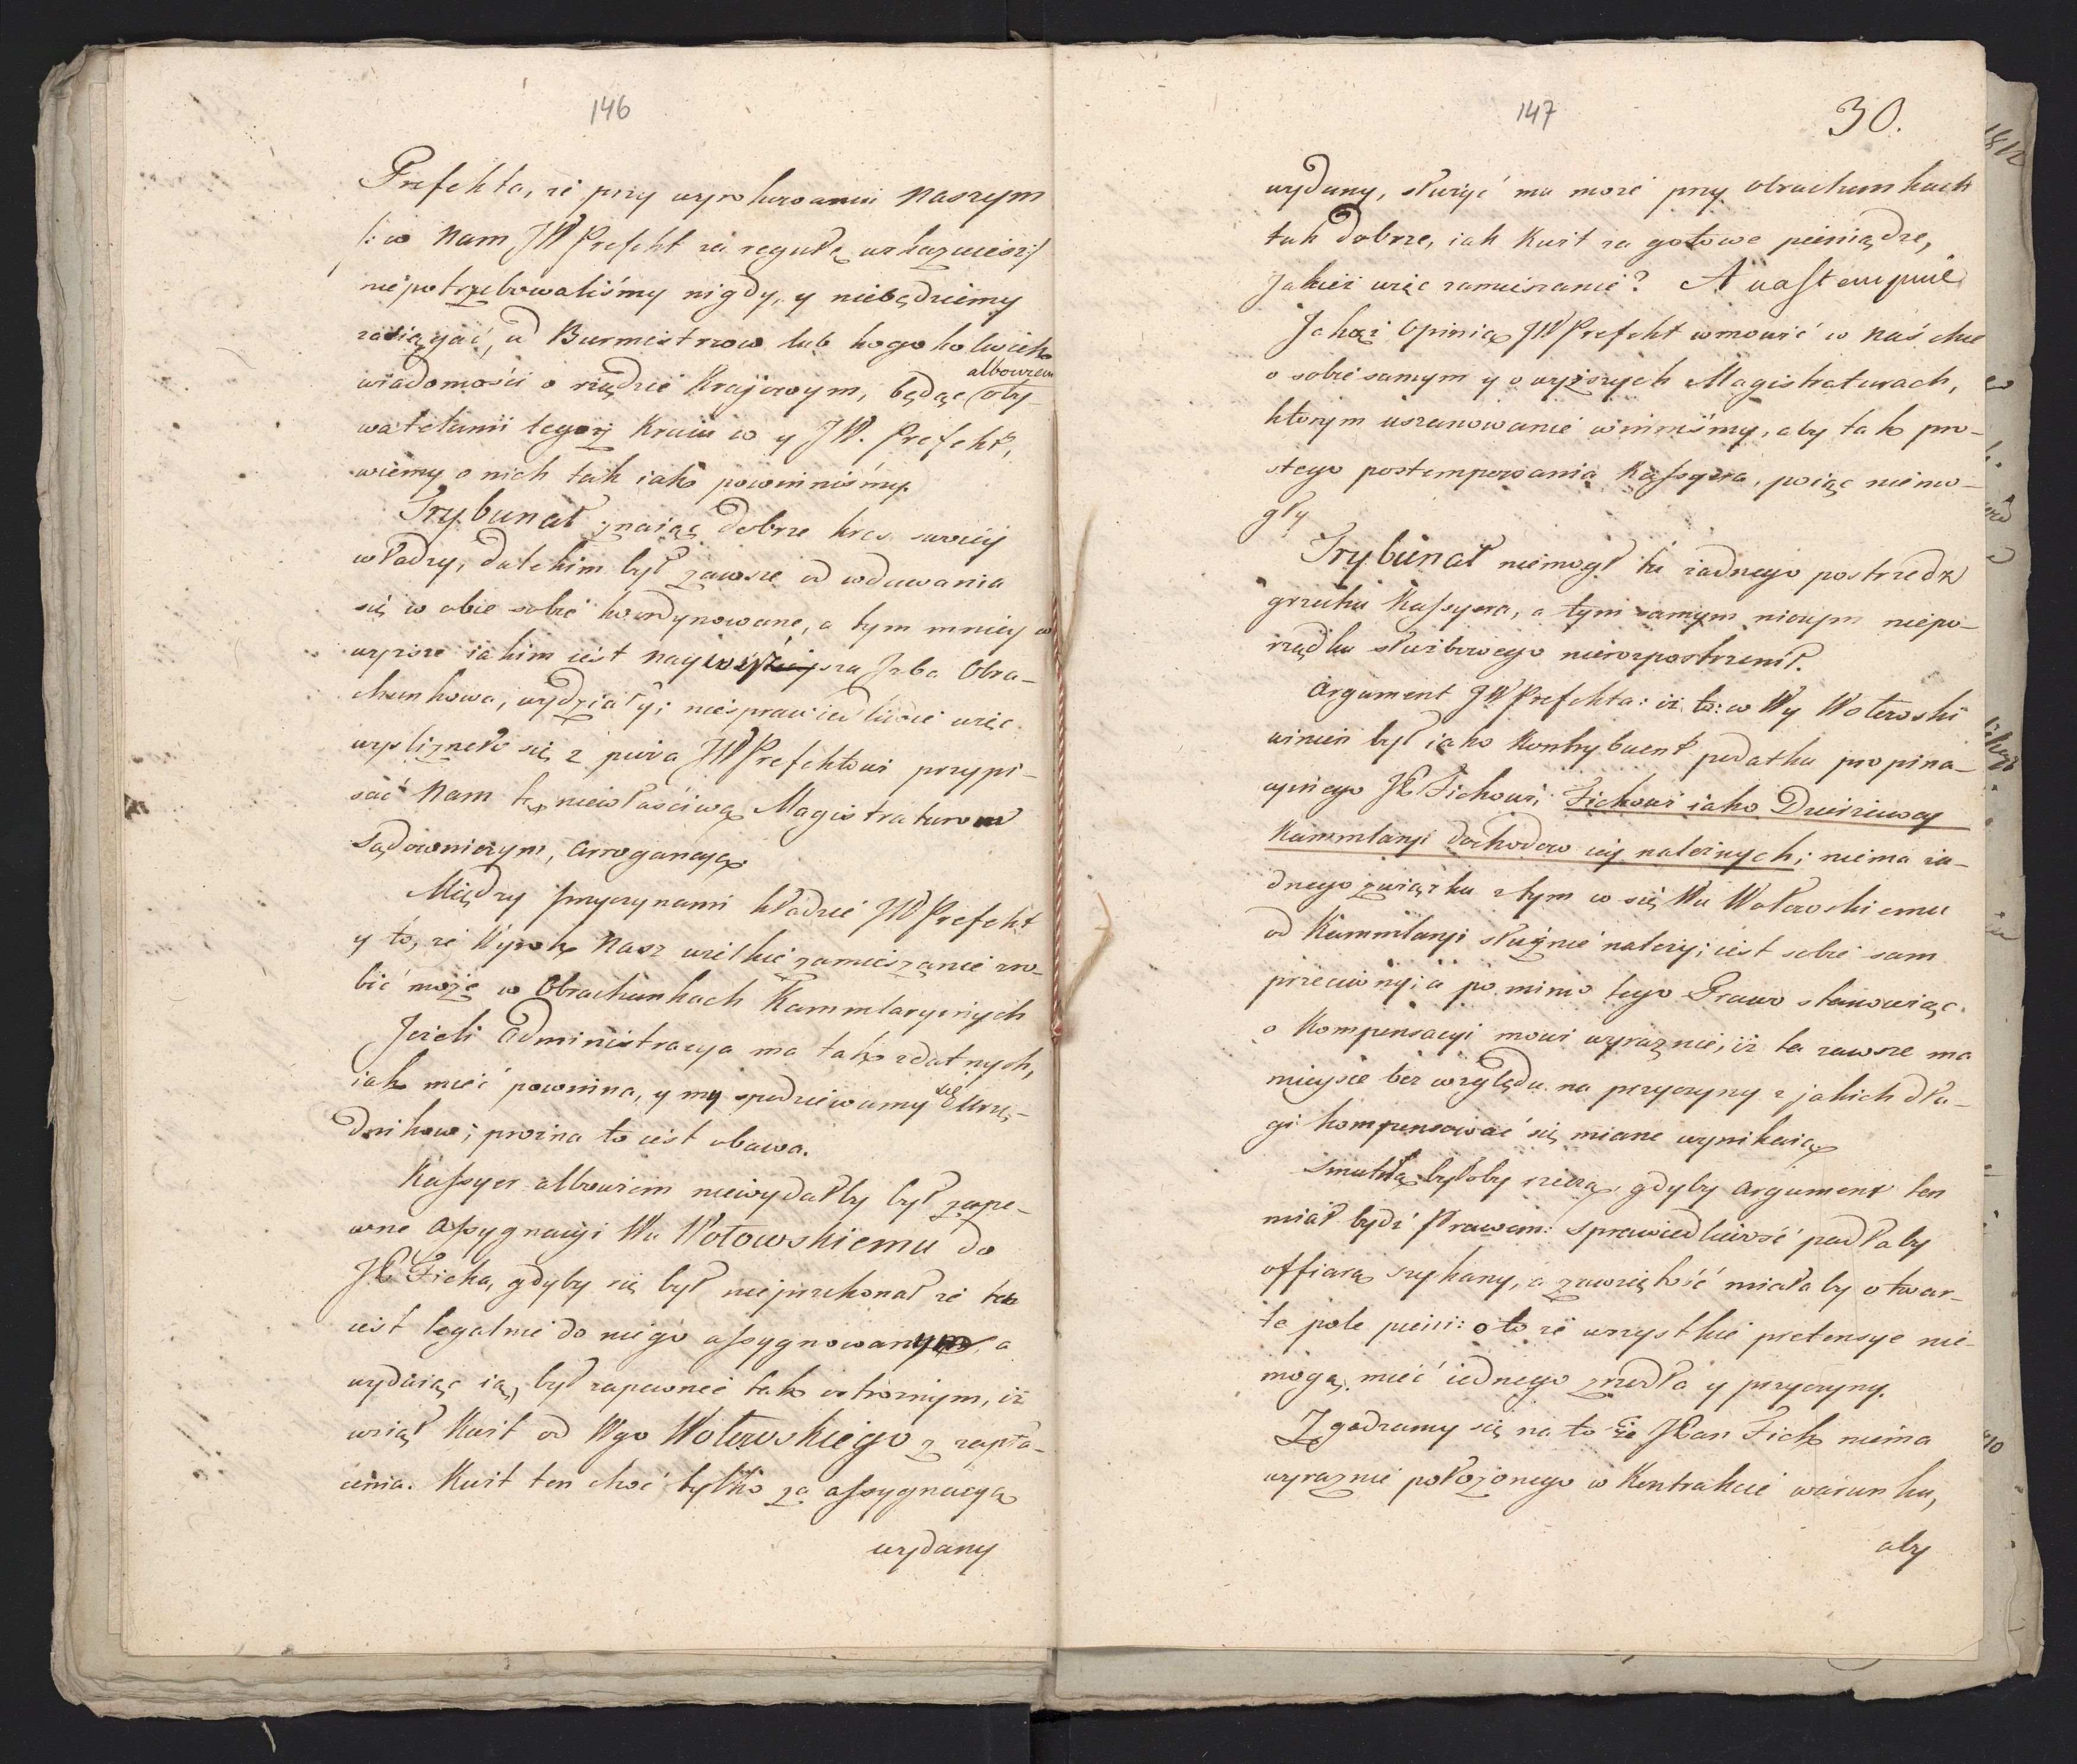 146
Prefekta, że przy wyrokowaniu naszym
/: co nam JW Prefekt za regułę wskazuiesz :/
niepotrzebowaliśmy nigdy, y niebędziemy
zasięgać, od Burmistrzow lub kogokolwiek
wiadomości o rządzie Krajowym, będąc albowiem oby-
watelami tegoż Kraiu co y JW. Prefekt,
wiemy o nich tak iako powinniśmy.
Trybunał znaiąc dobrze kres swoiéy
władzy, dalekim był zawsze od wdawania
się w obce sobie koordynowane, a tym mniéy w
wyższe iakim iest naywyższa Izba Obra-
chunkowa, wydziały; niesprawiedliwie więc
wyslizneło się z pióra JWPrefektowi przypi-
sać nam tę niewłaściwą Magistraturom
Sądowniczym, arrogancyą.
Między przyczynami kładzie JW Prefekt
y to, że Wyrok nasz wielkie zamieszanie zro-
bić może w Obrachunkach Kammlaryinych
Jeżeli administracya ma tak zdatnych,
iak mieć powinna, y my spodziewamy się Urzę-
dnikow; prożna to iest obawa.
Kassyer albowiem niewydałby był zape-
wne assygnacyi Wu Wołowskiemu do
JP Ficka, gdyby się był nieprzekonał że ten
iest legalnie do niego assygnowanym, a
wydaiąc ią, był zapewnie tak ostrożnym, iż
wziął Kwit od Wgo Wołowskiego z zapła-
cenia. Kwit ten choć tylko za assygnacyą
wydany
147
30.
wydany, służyć ma może przy obrachunkach
tak dobrze, iak Kwit za gotowe pieniądze,
Jakież więc zamieszanie? A nastempnie
Jakąż Opinią JW Prefekt wmowić w nas chce
o sobie samym y o wyższych Magistraturach,
którym uszanowanie winniśmy, aby tak pro-
stego postempowania Kassyera, poiąc niemo-
gły
Trybunał niemogł tu żadnego postrzedz
grzechu Kassyera, a tym samym niczym niepo-
rządku służbowego nierozpostrzenił.
Argument JW Prefekta: iż to: co Wy Wołowski
winien był iako Kontrybuent podatku propina-
cyinego JP Fickowi, Fickowi iako Dzierżawcy
Kammlaryi dochodow iéy należnych; niema ża-
dnego związku z tym co się Wu Wołowskiemu
od Kammlaryi słusznie należy; iest sobie sam
przeciwny; a pomimo tego Prawo stanowiąc
o Kompensacyi mowi wyraznie, iż ta zawsze ma
mieysce bez względu na przyczyny z jakich dłu-
gi kompensować się miane wynikaią
Smutną byłoby rzeczą, gdyby argument ten
miał bydź Prawem: sprawiedliwość padłaby
offiarą szykany, a zawziętość miałaby otwar-
te pole pieni: oto że wszystkie pretensye nie-
mogą mieć iednego zrzodła y przyczyny.
Zgadzamy się na to że JPan Fick niema
wyraznie położonego w Kontrakcie warunku,
aby